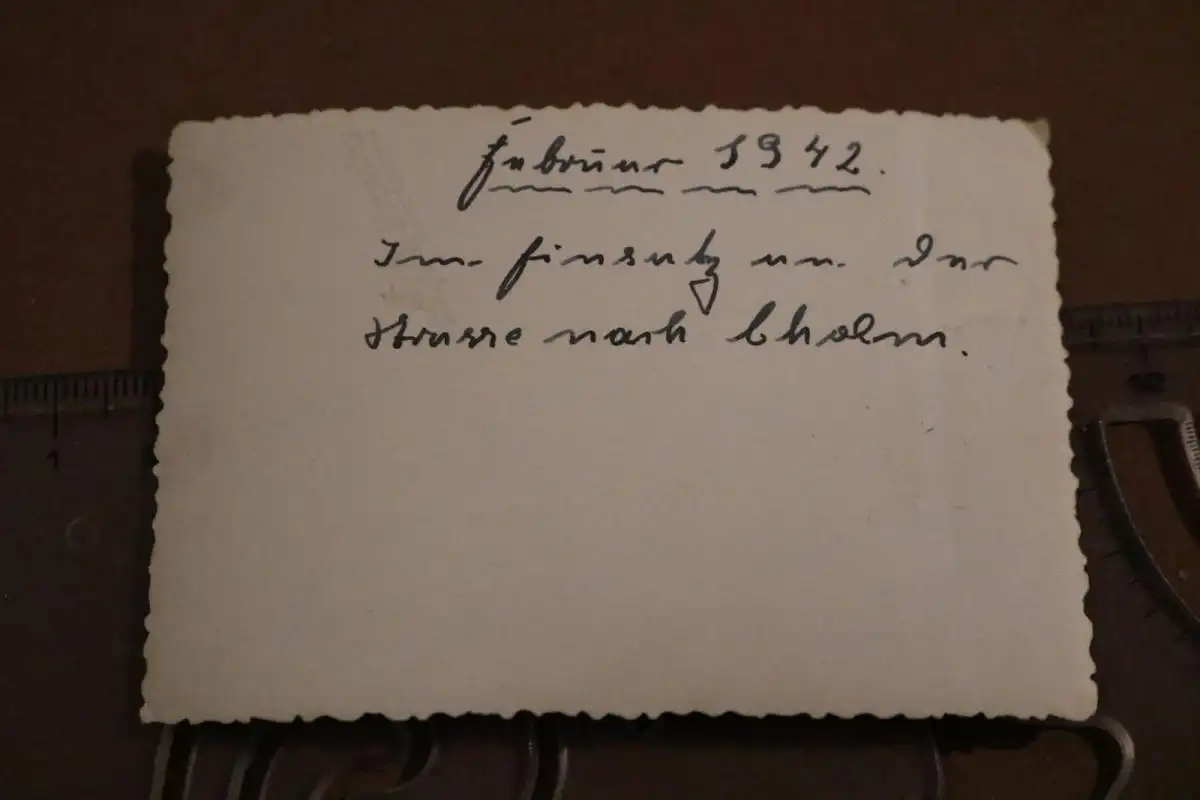 Februar 1942.
Im Einsatz an der
Strasse nach Cholm.
1